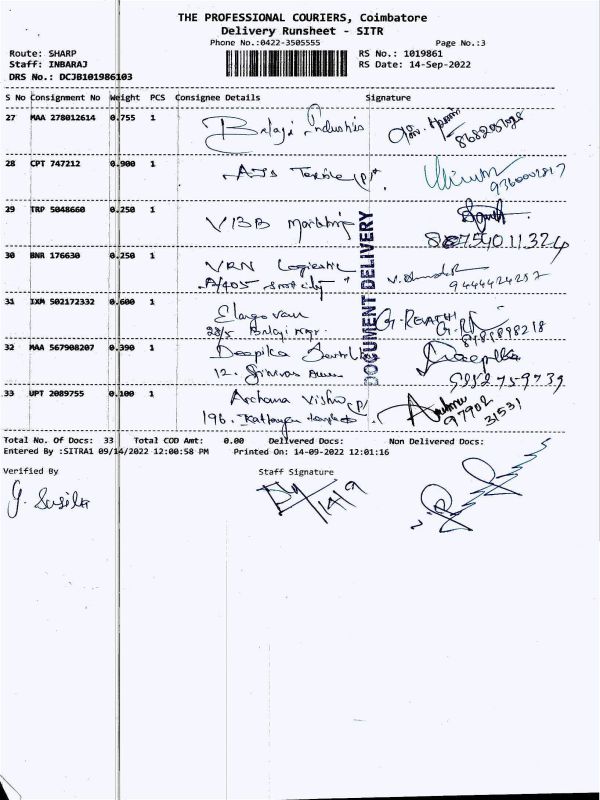 THE PROFESSIONAL COURIERS, Coimbatore
Delivery Runsheet - SITR
Phone No.:0422-3505555 Page No.:3
Route: SHARP RS No.: 1019861
Staff: INBARAJ RS Date: 14-Sep-2022
DRS No.: DCJB101986103
S No Consignment No Weight PCS Consignee Details Signature
27 MAA 278012614 0.755 1 Balaji Industries
28 CPT 747212 0.900 1 AJs Textile (P)
29 TRP 5048660 0.250 1 VIBB Marketing
86754011324
30 BNR 176630 0.250 1 VRN Logistic
A/405 smart city 9444424257
31 IXM 502172332 0.600 1 Elangovan G. REVATHI
28/5 Balaji Ngr. 8189898218
32 MAA 567908207 0.390 1 Deepika Deepika
12. Srinivas 9952759739
33 UPT 2089755 0.100 1 Archana Vishu (P)
196. 97902
31531
DOCUMENT DELIVERY
Total No. Of Docs: 33 Total COD Amt: 0.00 Delivered Docs: Non Delivered Docs:
Entered By :SITRA1 09/14/2022 12:00:58 PM Printed On: 14-09-2022 12:01:16
Verified By Staff Signature
G. Susila 14/9